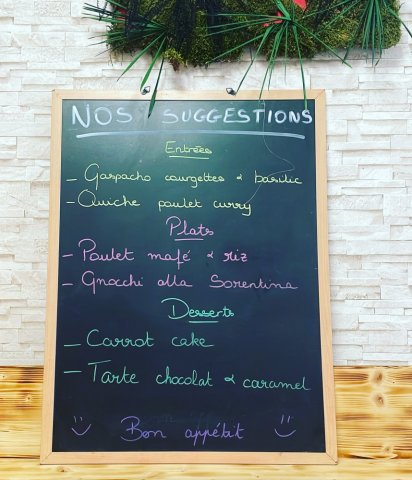 NOS SUGGESTIONS
Entrées
- Gaspacho courgettes & basilic
- Quiche poulet curry
Plats
- Poulet mafé & riz
- Gnocchi alla Sorentina
Desserts
- Carrot cake
- Tarte chocolat & caramel
Bon appétit